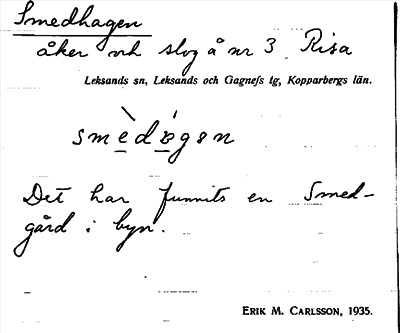 Smedhagen
åker och slog å nr 3 Risa
Leksands sn, Leksands och Gagnefs tg, Kopparbergs län.
smedøgøn
Det har funnits en Smed-
gård i byn.
ERIK M. CARLSSON, 1935.